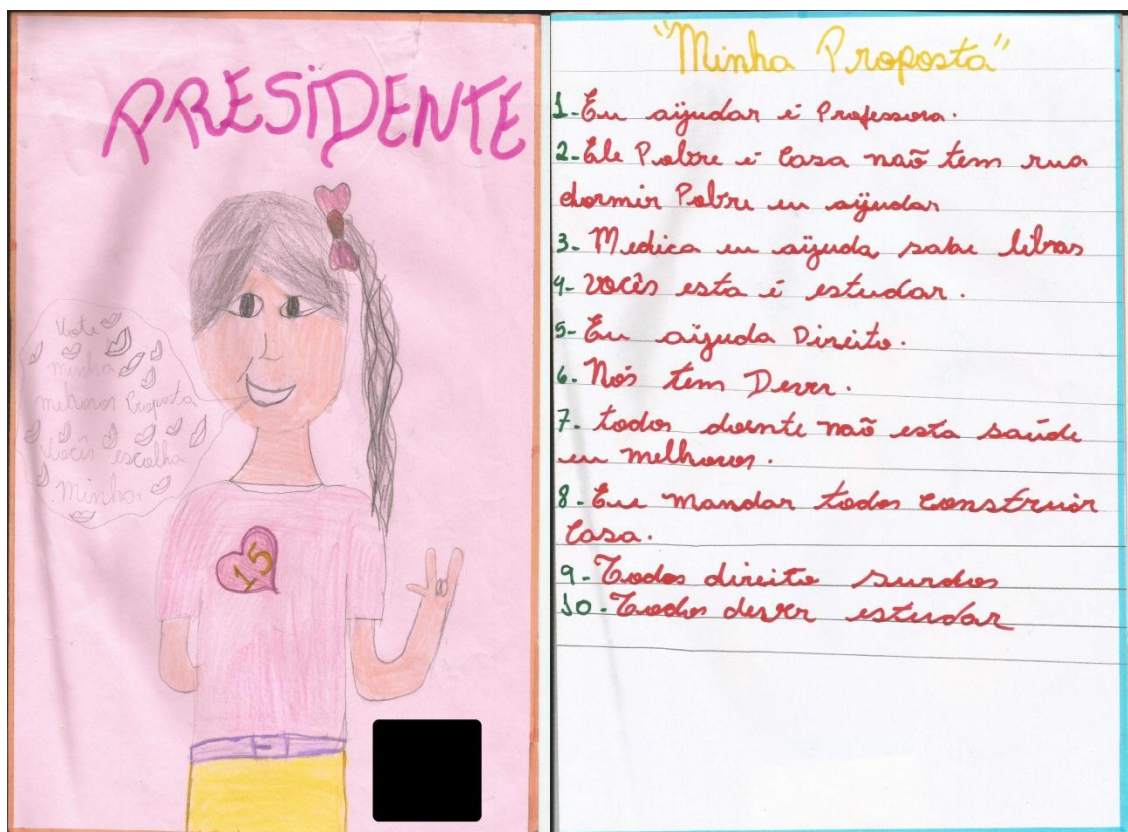 PRESIDENTE
Vote
minha
melhoros Proposta
Vocês escolha
Minha
15
"Minha Proposta"
1- Eu aïjudar é Professora.
2- Ele Pobre é Casa naõ tem rua
dormir Pobre eu aïjudar
3- Medica eu aïjuda sabe libras
4- Vocês esta é estudar.
5- Eu aïjuda Direito.
6- Nós tem Dever.
7- todos doente naõ esta saúde
eu melhoros.
8- Eu mandar todos construir
Casa.
9- Todos direito surdos
10- Todos dever estudar